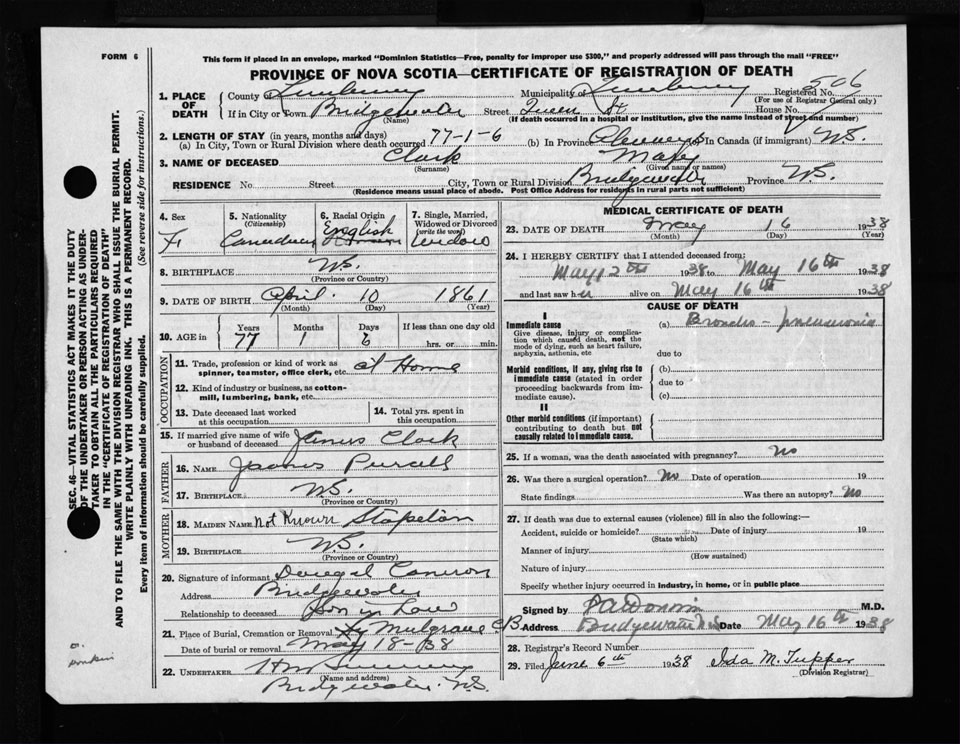 FORM 6
This form if placed in an envelope, marked "Dominion Statistics—Free, penalty for improper use $300," and properly addressed will pass through the mail "FREE"
PROVINCE OF NOVA SCOTIA—CERTIFICATE OF REGISTRATION OF DEATH
506
1. PLACE OF DEATH County of Lunenburg Municipality of Lunenburg Registered No.
(For use of Registrar General only)
If in City or Town Bridgewater Street Queen St House No.
(Name) (If death occurred in a hospital or institution, give the name instead of street and No.)
2. LENGTH OF STAY (in years, months and days)
(a) In City, Town or Rural Division where death occurred 77-1-6 (b) In Province Always (c) In Canada (if immigrant) N.S.
3. NAME OF DECEASED Clark Mary
(Surname) (Given name or names)
RESIDENCE No. Street City, Town or Rural Division Bridgewater Province N.S.
(Residence means usual place of abode. Post Office Address for residents in rural parts not sufficient)
SEC. 46—VITAL STATISTICS ACT MAKES IT THE DUTY
OF THE UNDERTAKER OR PERSON ACTING AS UNDER-
TAKER TO OBTAIN ALL THE PARTICULARS REQUIRED
IN THE "CERTIFICATE OF REGISTRATION OF DEATH"
AND TO FILE THE SAME WITH THE DIVISION REGISTRAR WHO SHALL ISSUE THE BURIAL PERMIT.
WRITE PLAINLY WITH UNFADING INK. THIS IS A PERMANENT RECORD.
Every item of information should be carefully supplied. (See reverse side for instructions.)
4. Sex 5. Nationality (Citizenship) 6. Racial Origin 7. Single, Married, Widowed or Divorced (write the word)
F. Canadian English Widow
8. BIRTHPLACE N.S.
(Province or Country)
9. DATE OF BIRTH April 10 1861
(Month) (Day) (Year)
10. AGE in Years Months Days If less than one day
77 1 6 hrs. or min.
OCCUPATION
11. Trade, profession or kind of work as spinner, teamster, office clerk, etc. at Home
12. Kind of industry or business, as cotton-mill, lumbering, bank, etc.
13. Date deceased last worked at this occupation
14. Total yrs. spent in this occupation
15. If married give name of wife or husband of deceased James Clark
FATHER
16. NAME James Purcell
17. BIRTHPLACE N.S.
(Province or Country)
MOTHER
18. MAIDEN NAME Not Known Stapleton
19. BIRTHPLACE N.S.
(Province or Country)
20. Signature of informant Cameron
Address Bridgewater
Relationship to deceased Son in Law
21. Place of Burial, Cremation or Removal Mulgrave CB
Date of burial or removal May 18-38
22. UNDERTAKER
(Name and address)
Bridgewater. N.S.
MEDICAL CERTIFICATE OF DEATH
23. DATE OF DEATH May 16 1938
(Month) (Day) (Year)
24. I HEREBY CERTIFY that I attended deceased from:
May 12th 1938 to May 16th 1938
and last saw her alive on May 16th 1938
CAUSE OF DEATH
I
Immediate cause (a) Broncho-pneumonia
Give disease, injury or complication which caused death, not the mode of dying, such as heart failure, asphyxia, asthenia, etc
due to
Morbid conditions, if any, giving rise to immediate cause (stated in order proceeding backwards from immediate cause).
(b)
due to
(c)
II
Other morbid conditions (if important) contributing to death but not causally related to immediate cause.
25. If a woman, was the death associated with pregnancy? No
26. Was there a surgical operation? No Date of operation 19
State findings Was there an autopsy? No
27. If death was due to external causes (violence) fill in also the following:—
Accident, suicide or homicide? Date of injury 19
(State which)
Manner of injury
(How sustained)
Nature of injury
Specify whether injury occurred in industry, in home, or in public place
Signed by M.D.
Address Bridgewater N.S. Date May 16th 1938
28. Registrar's Record Number
29. Filed June 6th 1938 Ida M. Tupper
(Division Registrar)